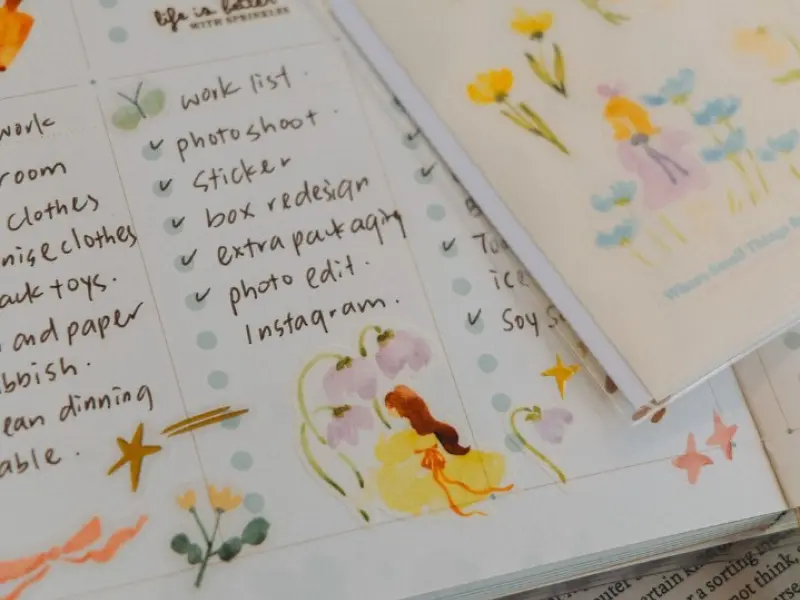 life is better
WITH SPRINKLES
work
room
clothes
nise clothes
ack toys.
and paper
bbish.
ean dinning
able.
work list.
photoshoot.
sticker
box redesign
extra packaging
photo edit.
Instagram.
ice
Soy S
Where Small Things
outer
ertain
a sorting
not think,